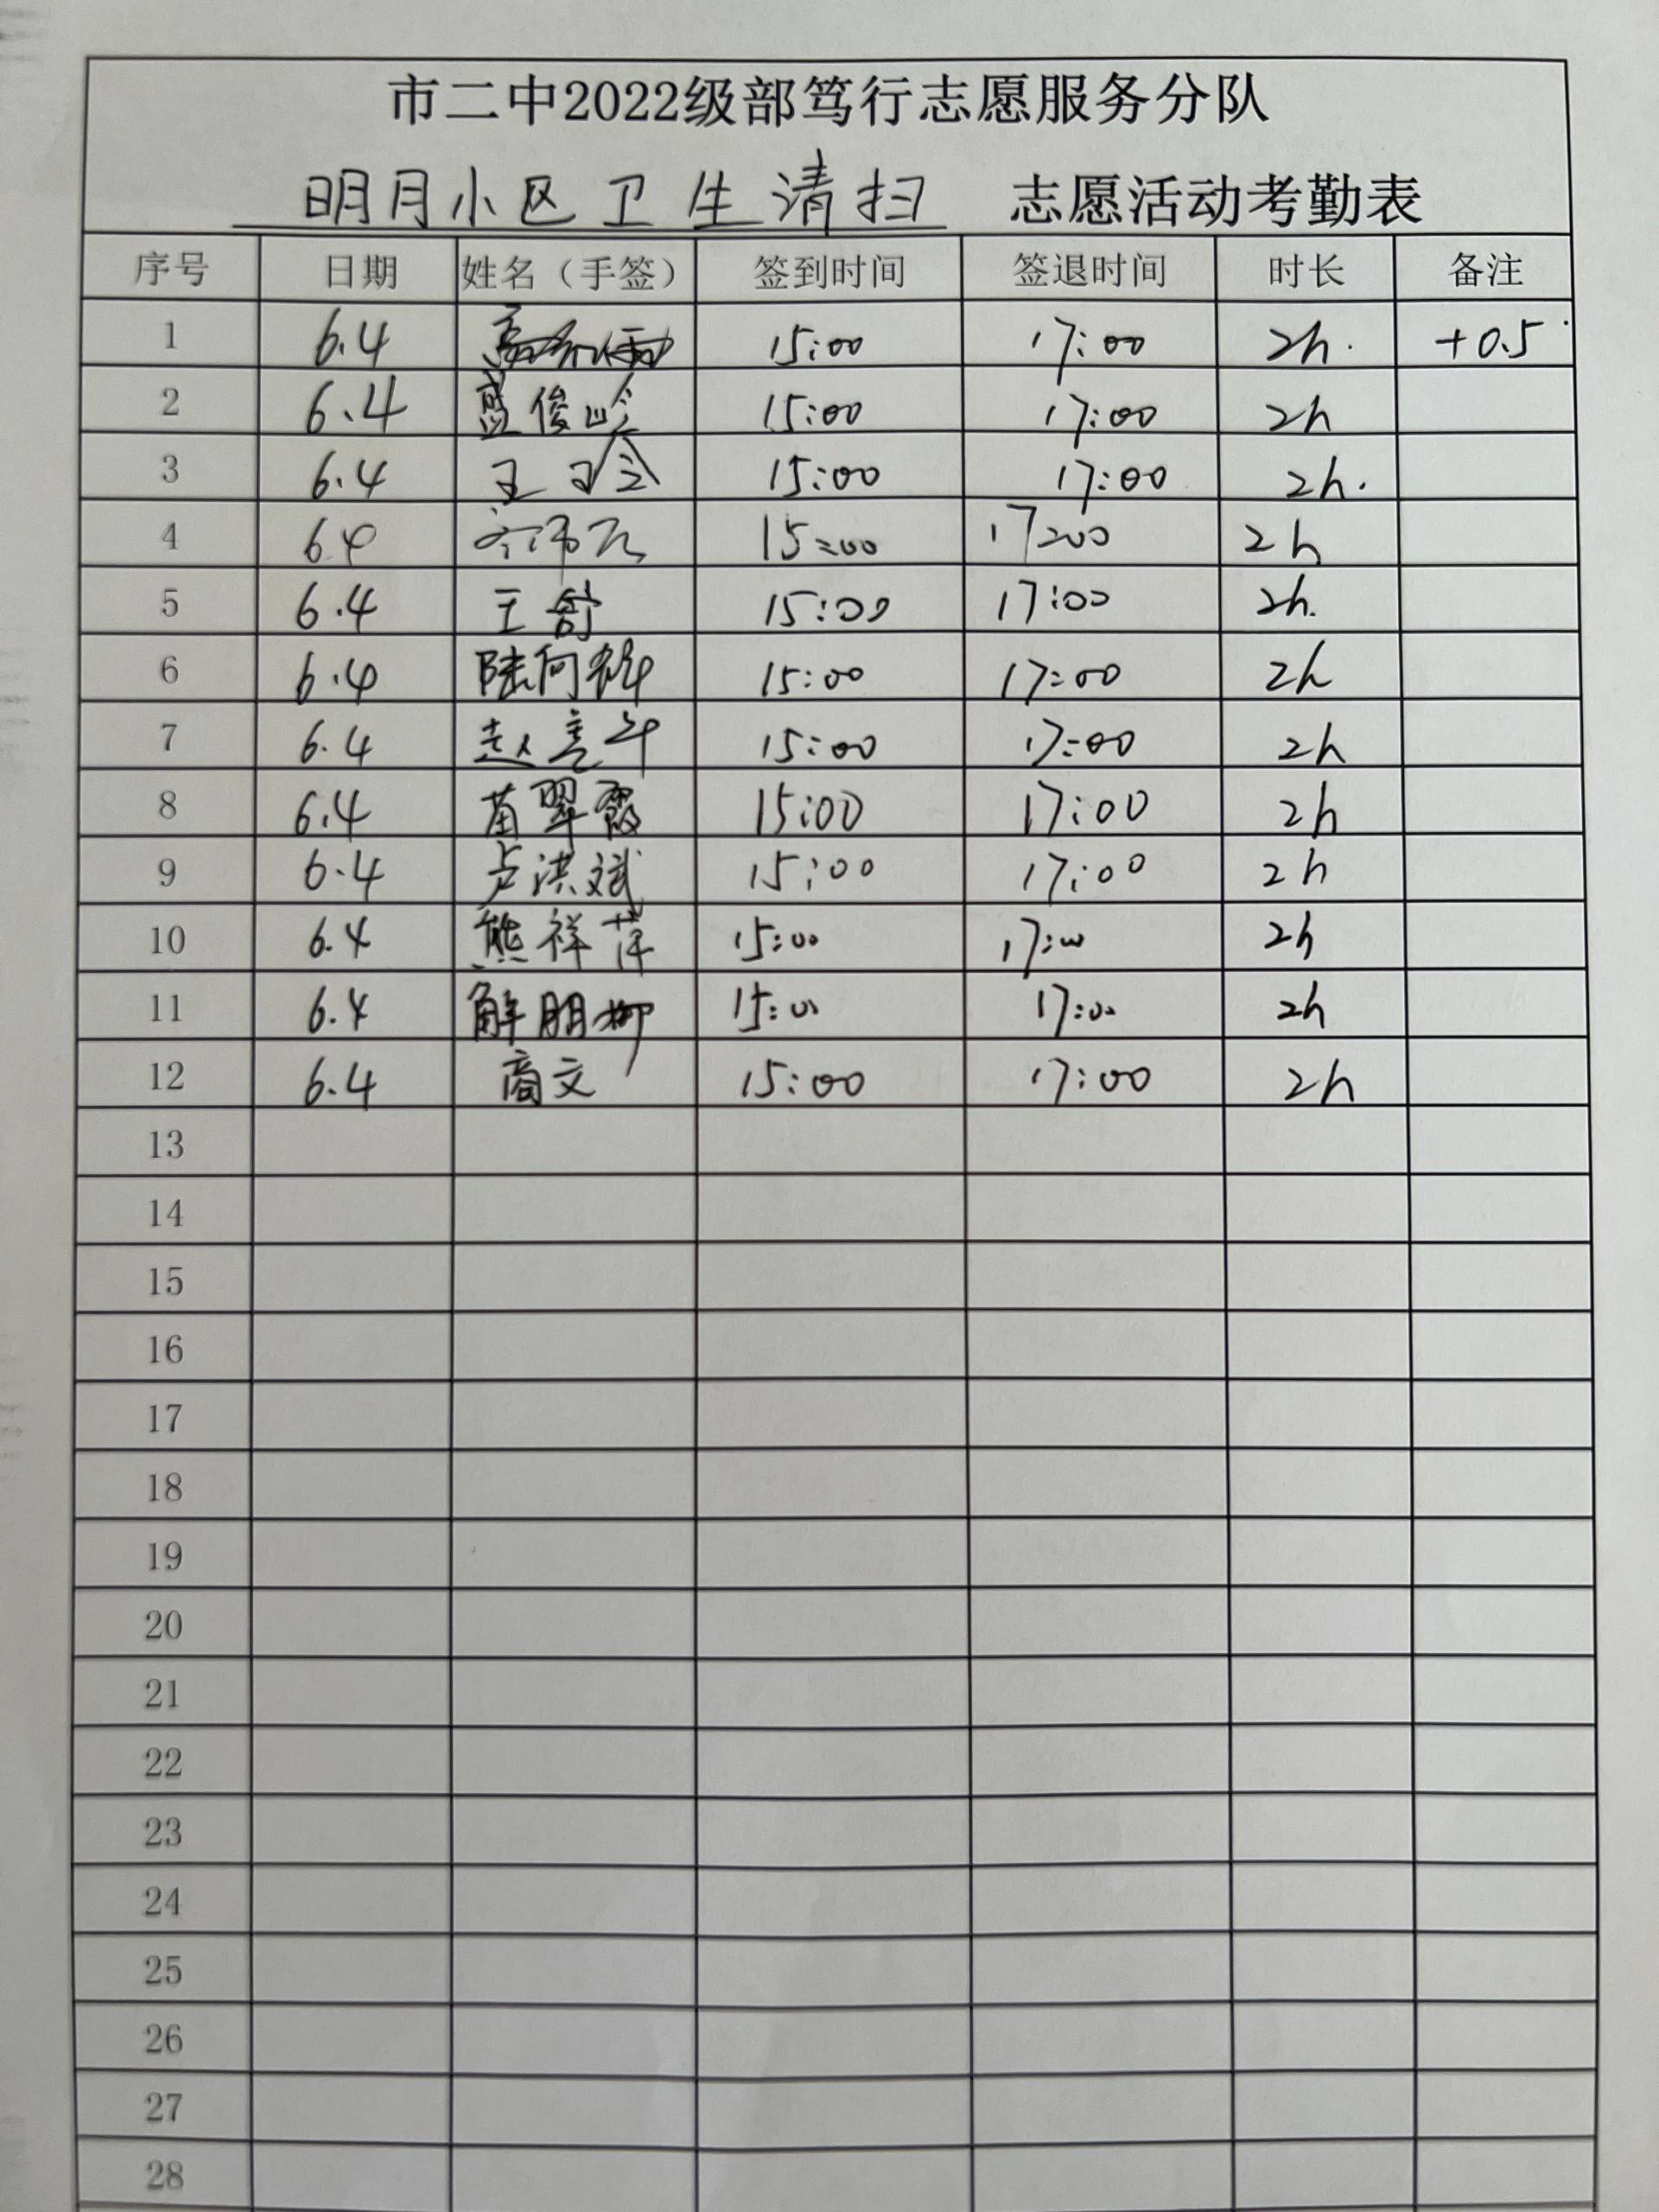 市二中2022级部笃行志愿服务分队
明月小区卫生清扫 志愿活动考勤表
序号 日期 姓名（手签） 签到时间 签退时间 时长 备注
1 6.4 15:00 17:00 2h. +0.5
2 6.4 盛俊岭 15:00 17:00 2h
3 6.4 王 15:00 17:00 2h.
4 6.4 15:00 17:00 2h
5 6.4 王舒 15:00 17:00 2h.
6 6.4 陆向 15:00 17:00 2h
7 6.4 赵 15:00 17:00 2h
8 6.4 苗翠霞 15:00 17:00 2h
9 6.4 卢洪斌 15:00 17:00 2h
10 6.4 熊祥萍 15:00 17:00 2h
11 6.4 解朋柳 15:00 17:00 2h
12 6.4 商文 15:00 17:00 2h
13
14
15
16
17
18
19
20
21
22
23
24
25
26
27
28